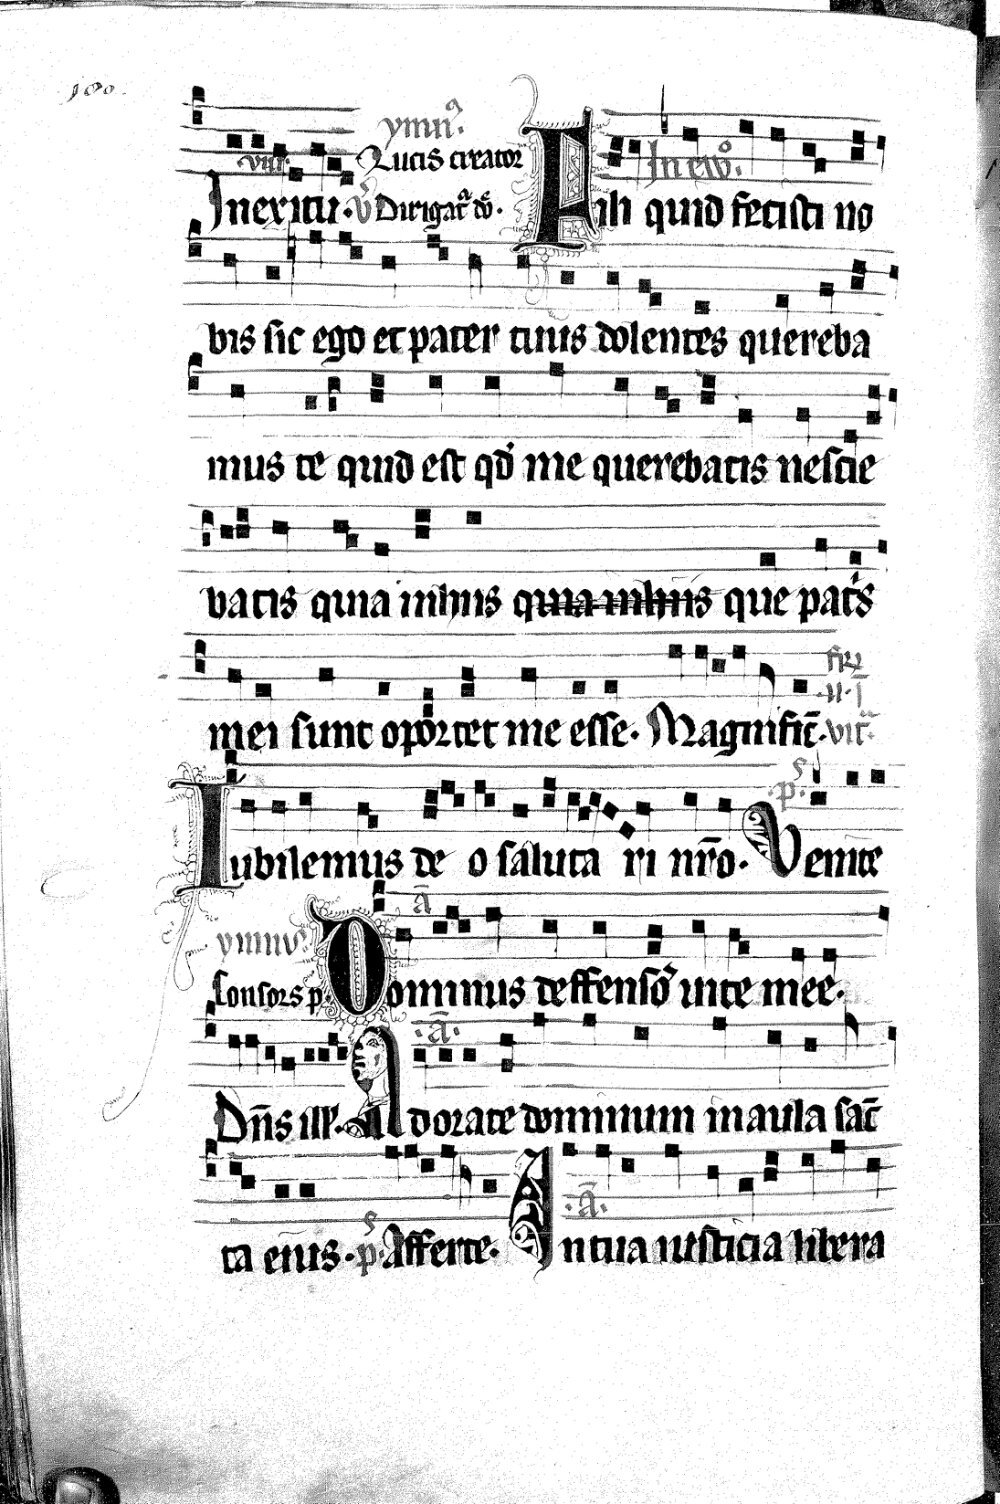 100.
ymn̄.
viii. Lucis creator In evo.
In exitu. v Dirigat̄ dō. Fili quid fecisti no
bis sic ego et pater tuus dolentes quereba
mus te quid est qd̄ me querebatis nescie
batis quia in hiis quia in hiis que pat̓s
mei sunt oportet me esse. Magnific̄.
ps
Iubilemus deo saluta ri nr̄o. Venite
ā
ymnus
Consors p. Dominus deffensor̄ vite mee.
.ā.
Dn̄s ill. Adorate dominum in aula sāc
ta eius. ps. Afferte. In tua iusticia libera
.ā.